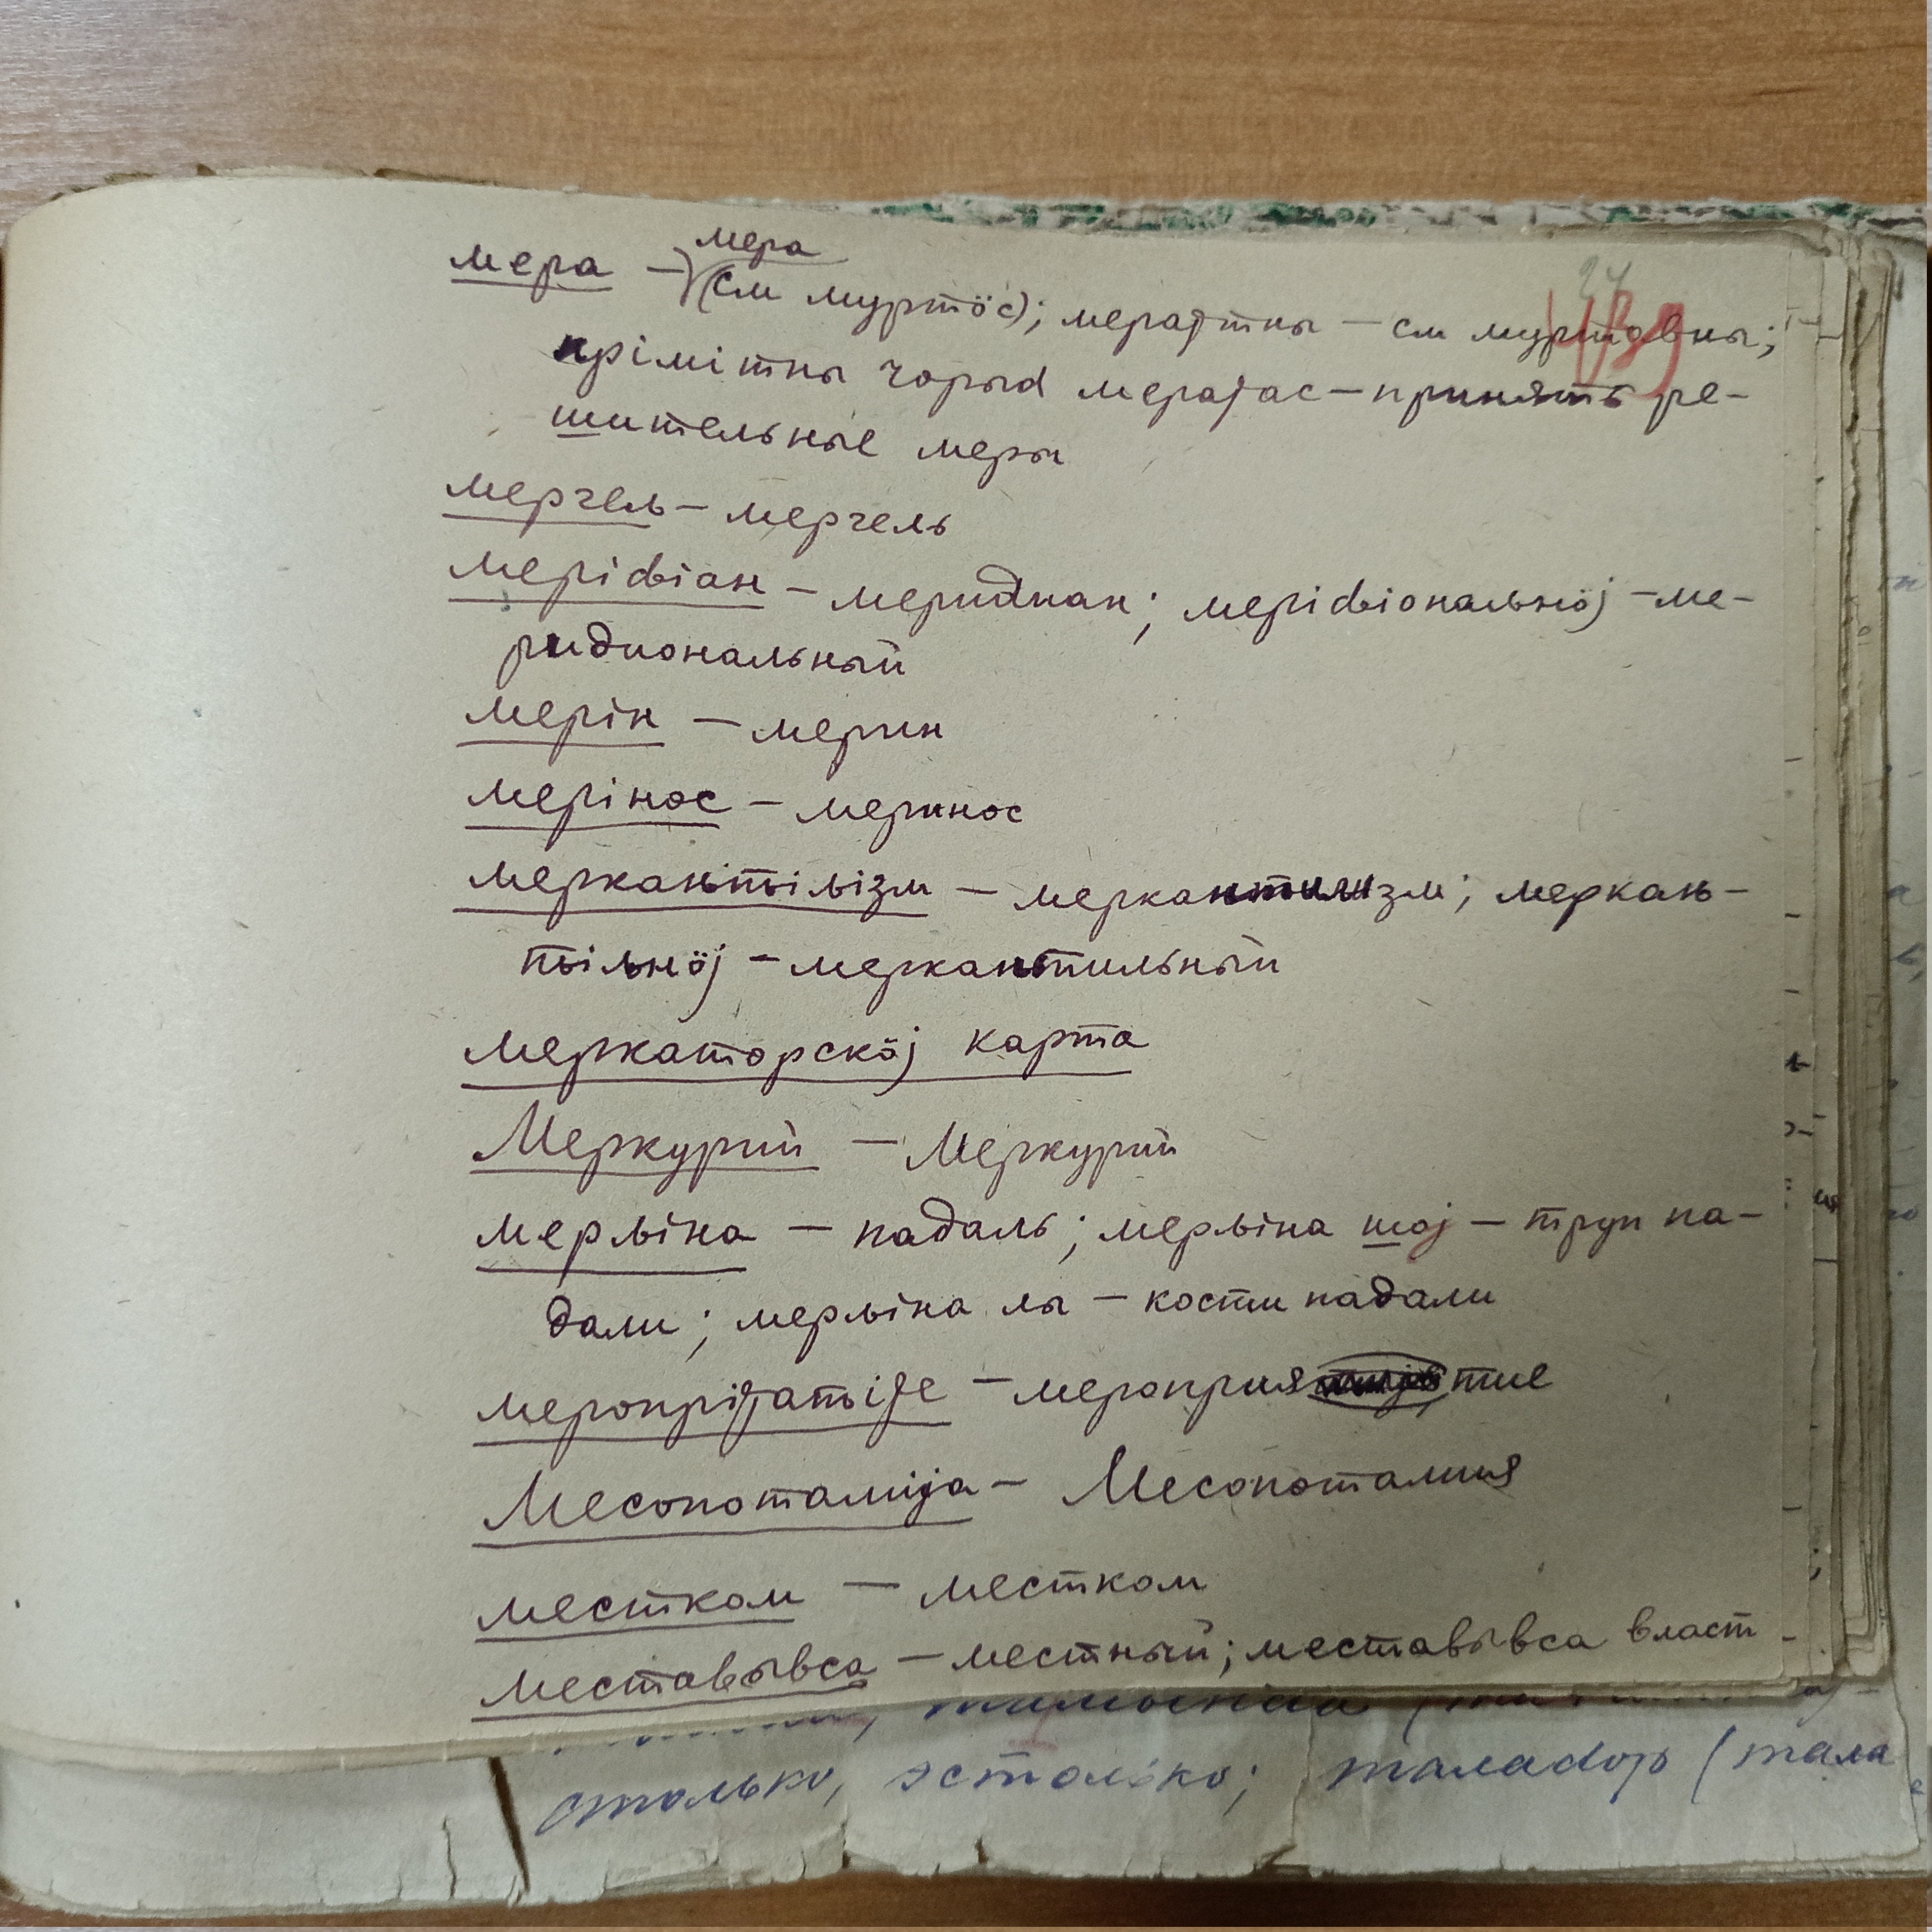 мера
мера – (см муртӧс); мераȷтны – см муртавны;
прімітны чорыd мераȷас – принять ре-
шительные меры
мергель – мергель
меріdіан – меридиан; меріdіональнӧj – ме-
ридиональный
мерін – мерин
мерінос – меринос
мерканьтьільізм – меркантилизм; меркань-
тьільнӧj – меркантильный
меркаторскӧj карта
Меркурий – Меркурий
мерльіна – падаль; мерльіна шој – труп па-
дали; мерльіна лы – кости падали
мероприятие
Месопотаміја – Месопотамия
местком – местком
меставывса – местный; меставывса власт
столько, эстолько;